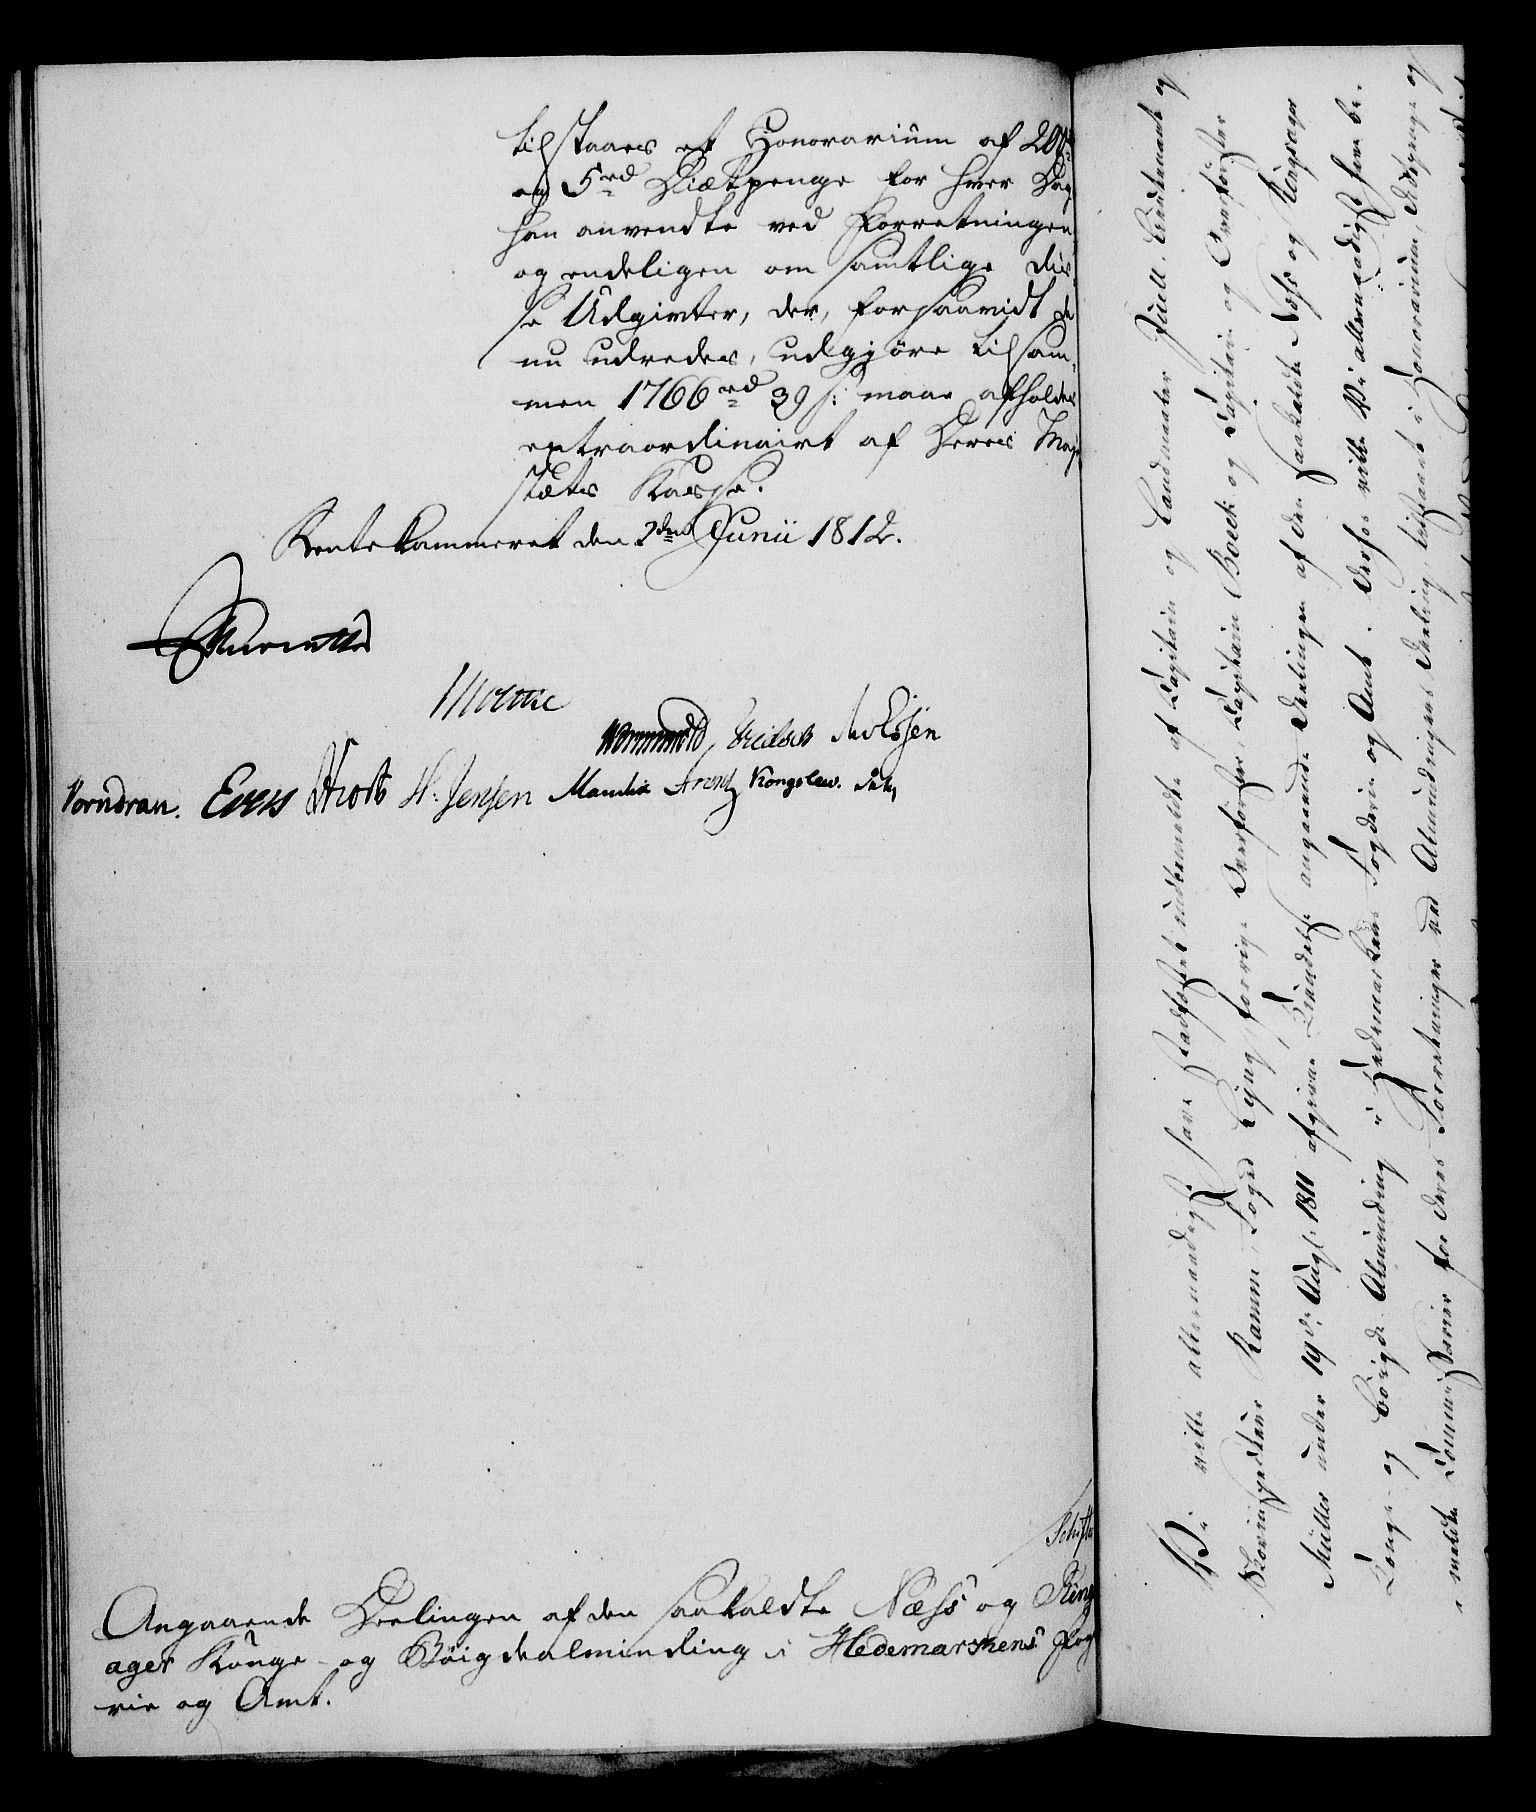 tilstaaes et Honorarium af 200rd
og 5rd Diætpenge for hver Dag
han anvendte ved Forretningen
og endeligen om samtlige dis-
se Udgivter, der, forsaavidt de
nu udredes, udgjöre tilsam-
men 1766rd 39 s: maae afholdes
extraordinairt af Deres Maje
stæts Kasse.
Rentekammeret den 2den Junii 1812.
Wormskiold
Vorndran. Hrots H. Jensen Manthe Arentz Kongslew.
Schiftr
Angaaende Deelingen af den saakaldte Næss og Ring
ager Konge- og Böigdealminding i Hedemarkens Fog
rie og Amt.
Vi ville allernaadigst have stadfæstet indbemeldte af Capitain og Landmaaler Juell, Lieutenant og
Skovinspecteur Ramm, Foged Lyng, forrige Overförster, Capitain Boeck og Capitain og Overförster
Müller under 19de Aug: 1811 afgivne Kiendelse angaaende Deelingen af den saakaldte Næss og Ringsager
Konge- og Böigde Alminding i Hedemarkens Fogderie og Amt. Derhos ville Vi allernaadigst have be-
meldte Commissarier for deres Forretninger ved Almindingens Deeling tilstaaet i Honorarium, Udgivt og